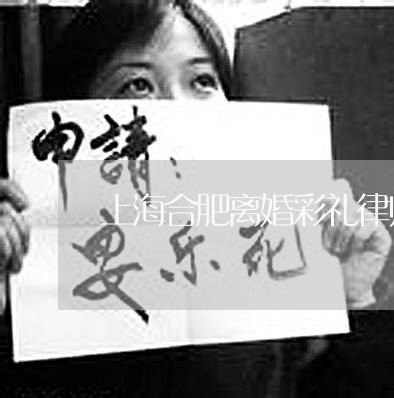 申請：
上海合肥离婚彩礼律
安乐死